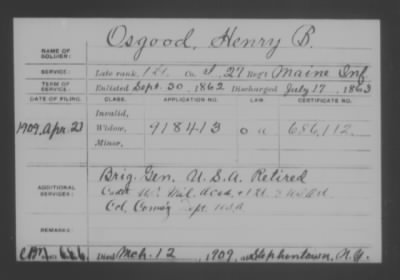 Osgood, Henry B.
NAME OF SOLDIER:
SERVICE: Late rank, 1 Lt. Co. I, 27 Reg't Maine Inf
TERM OF SERVICE: Enlisted Sept. 30, 1862 Discharged July 17, 1863
DATE OF FILING. CLASS. APPLICATION NO. LAW. CERTIFICATE NO.
Invalid,
1909, Apr. 23 Widow, 918413 686,112.
Minor,
Brig. Gen. U.S.A. Retired
ADDITIONAL SERVICES: Cadet Mil. Acad. + 1 Lt. 3 US Art
Col. Comsy Dept. USA
REMARKS:
Died Mch. 12, 1909, at Stephentown, N.Y.